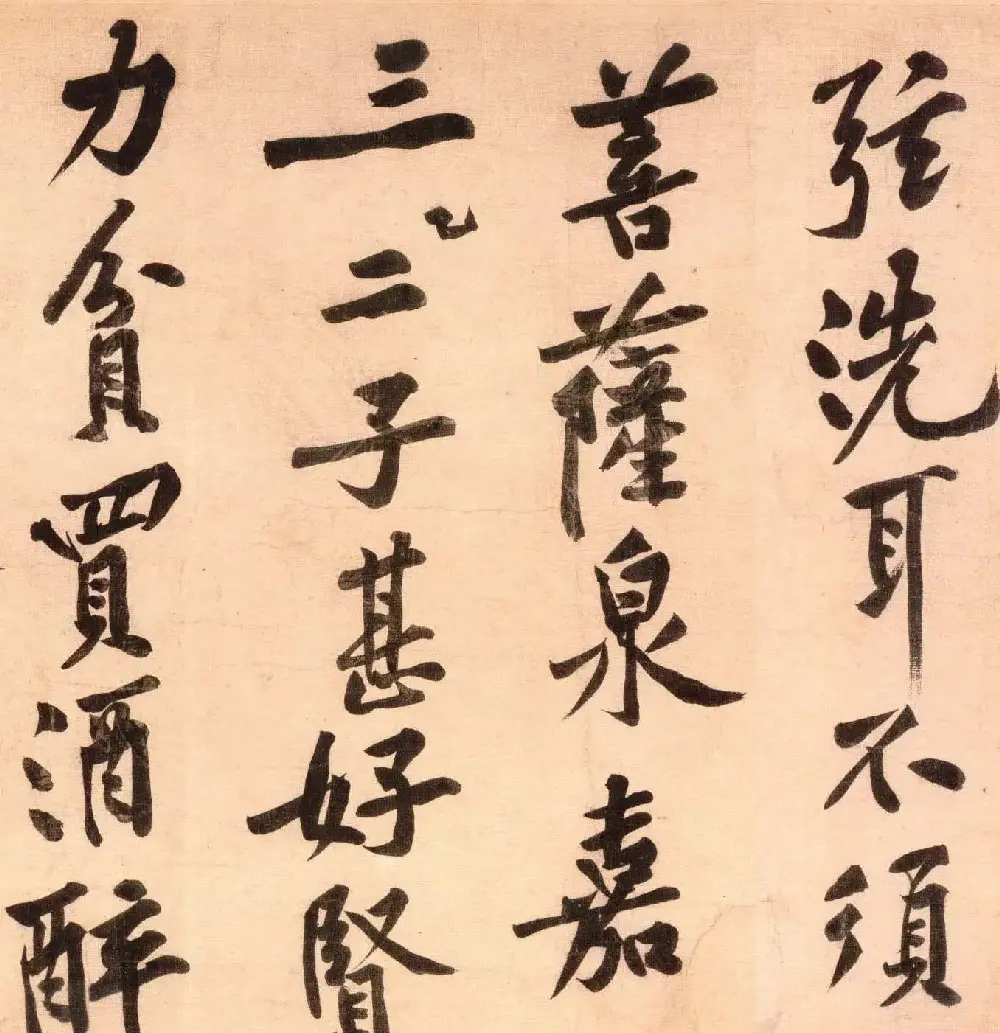 弦洗耳不須
菩薩泉嘉
三二子甚好賢
力貧買酒醉